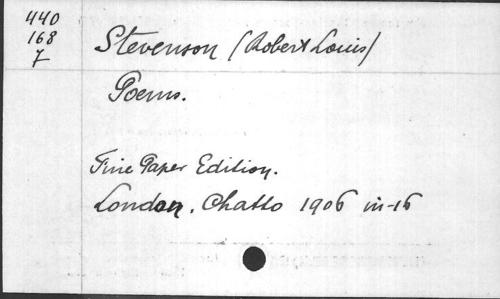 440
168
7
Stevenson (Robert Louis)
Poems.
Fine Paper Edition.
London. Chatto 1906 in-16